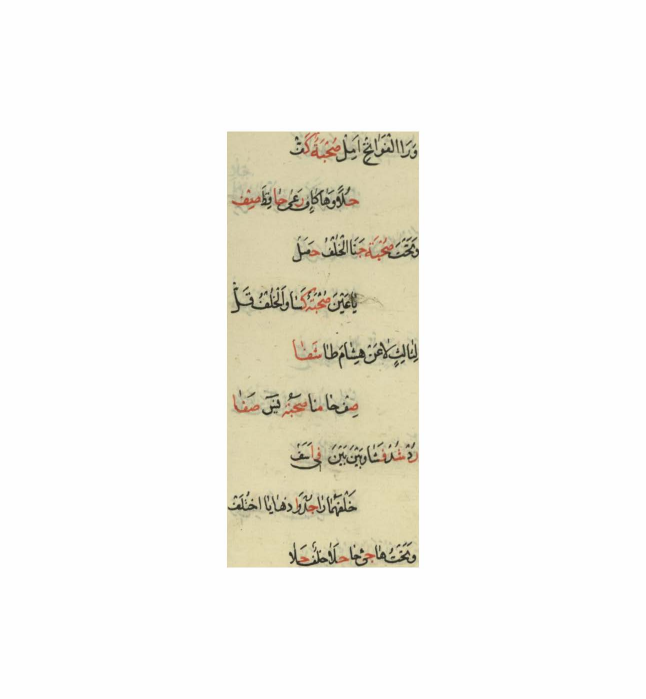 وَرَا الْفَوَاتِحْ اَمِلْ صُحْبَةُ كَفْ
حُلًا وَهَا كَافَ رَعَى حَافِظَ صِفْ
وَتَحْتُ صُحْبَةٌ جَنَا الْخُلْفُ حَصَلْ
يَا عَيْنَ صُحْبَةٌ كَسَا وَالْخُلْفُ قَلْ
لِثَالِثٍ لَا عَنْ هِشَامَ طَا شَفَا
صِفْ حَا مُنَا صُحْبَةُ يٰسٓ صَفَا
رُدْ شُدْ فَشَا وَبَيْنَ بَيْنَ فِى اَسَفْ
خَلْفَهُمَا رَا جُدْ وَاِذْ هَا يَا اخْتُلَفْ
وَتَحْتُ هَا جِئْ حَا حَلَا خُلْفَ جَلَا